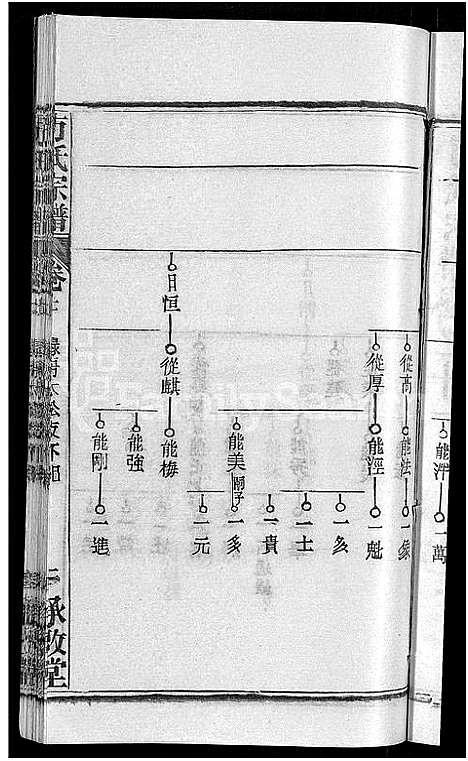 能洋
一萬
從高
能法
一像
從厚
能淫
一魁
一多
一士
一貴
能美
嗣子
一多
一元
日恒
從麒
能梅
能強
能剛
一進
方氏宗譜
卷
承啟堂